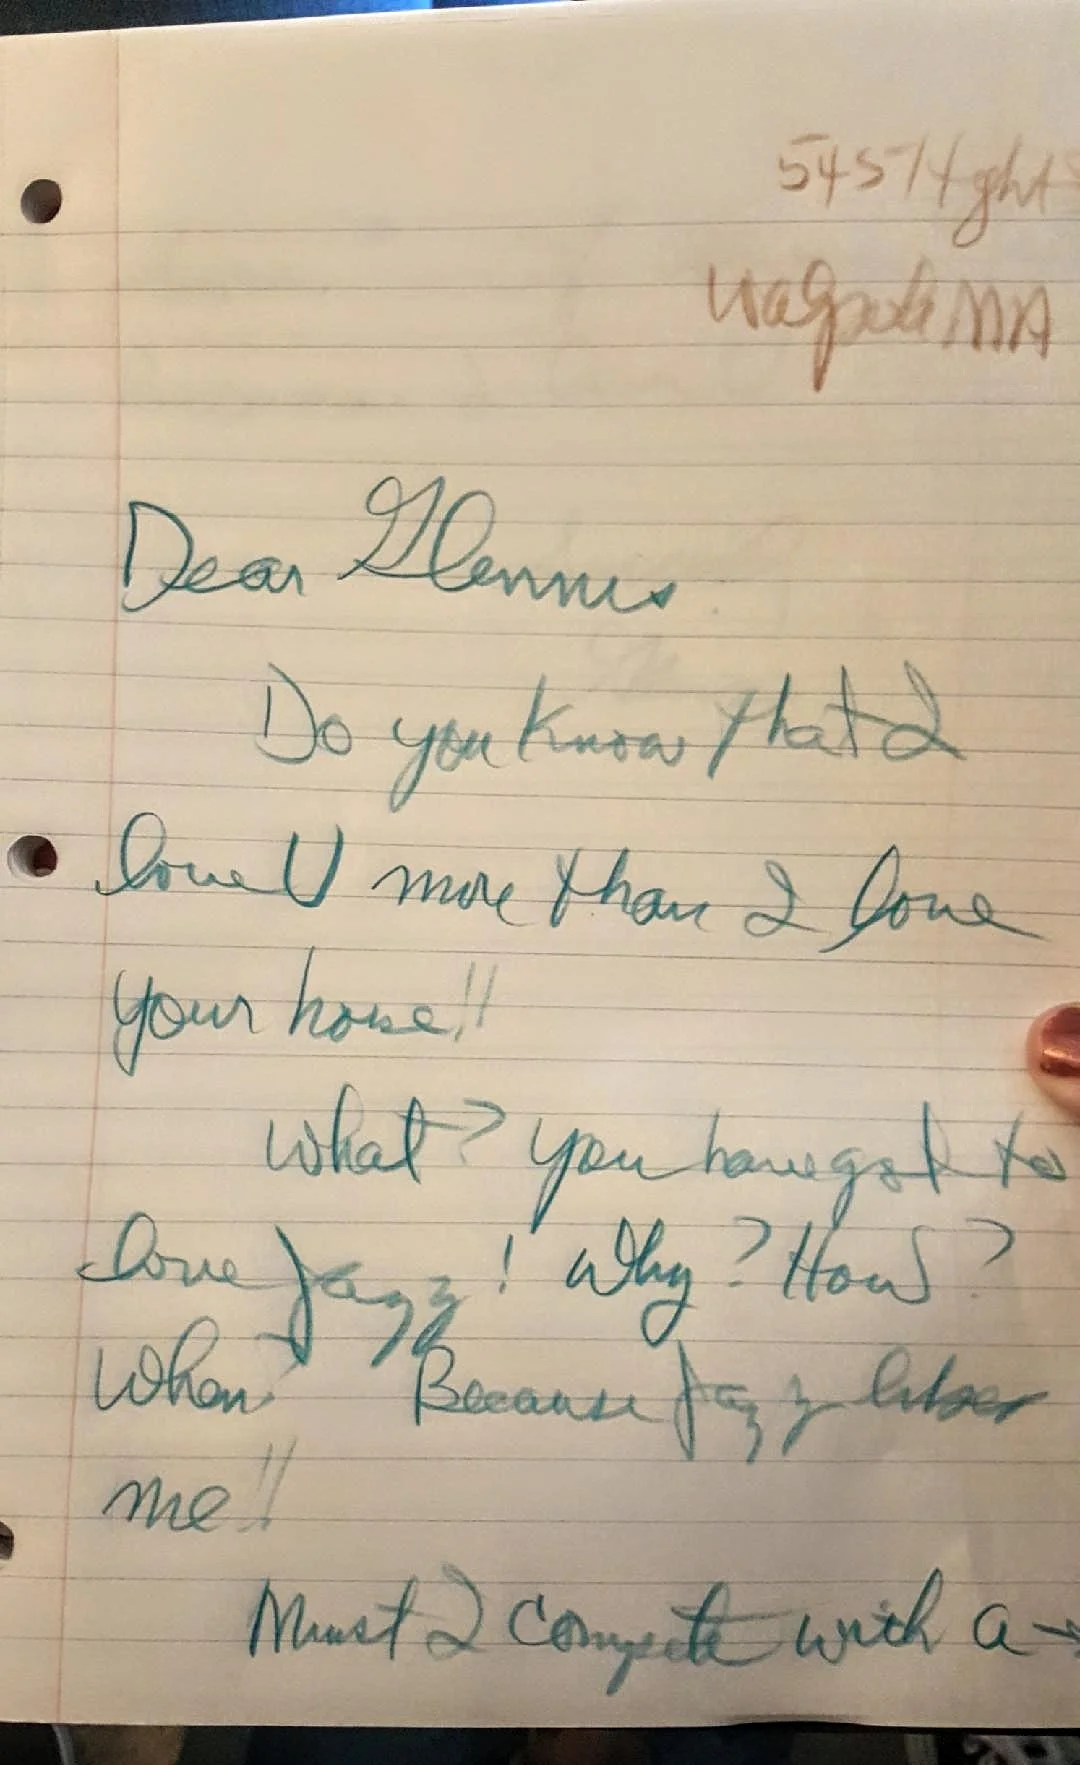 MA
Dear Glennis
Do you know that I
love U more than I love
your house!!
What? you have got to
love Jazz! Why? How?
When? Because Jazz
me!!
Must I Compete with a →